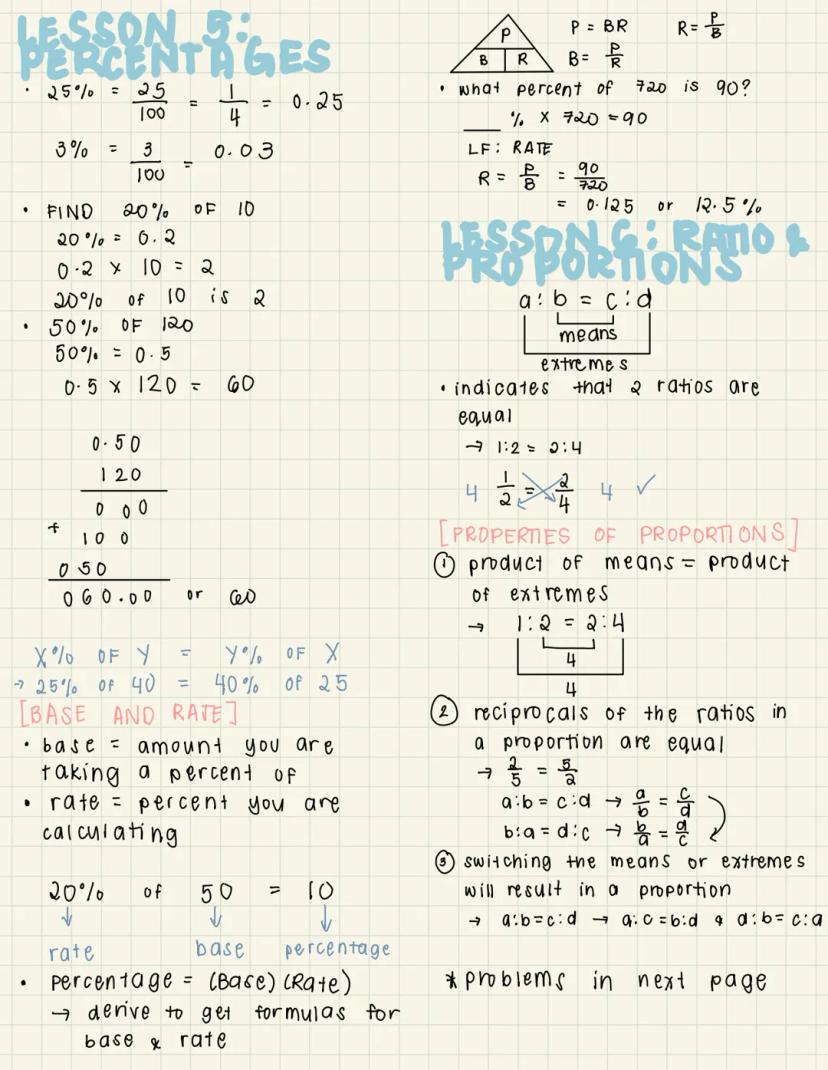 LESSON 5:
PERCENTAGES
• 25% = 25/100 = 1/4 = 0.25
3% = 3/100 = 0.03
• FIND 20% OF 10
20% = 0.2
0.2 x 10 = 2
20% of 10 is 2
• 50% OF 120
50% = 0.5
0.5 x 120 = 60
0.50
120
0 00
+ 10 0
0 50
060.00 or 60
X% OF Y = Y% OF X
→ 25% of 40 = 40% of 25
[BASE AND RATE]
• base = amount you are
taking a percent of
• rate = percent you are
calculating
20% of 50 = 10
↓ ↓ ↓
rate base percentage
• Percentage = (Base)(Rate)
→ derive to get formulas for
base & rate
P
B R
P = BR R = P/B
B = P/R
• what percent of 720 is 90?
___ % x 720 = 90
LF: RATE
R = P/B = 90/720
= 0.125 or 12.5%
LESSON 6: RATIO &
PROPORTIONS
a:b = c:d
means
extremes
• indicates that 2 ratios are
equal
→ 1:2 = 2:4
4 1/2 = 2/4 4 ✓
[PROPERTIES OF PROPORTIONS]
① product of means = product
of extremes
→ 1:2 = 2:4
4
4
② reciprocals of the ratios in
a proportion are equal
→ 2/5 = 5/2
a:b = c:d → a/b = c/d
b:a = d:c → b/a = d/c
③ switching the means or extremes
will result in a proportion
→ a:b=c:d → a:c=b:d & d:b=c:a
*problems in next page